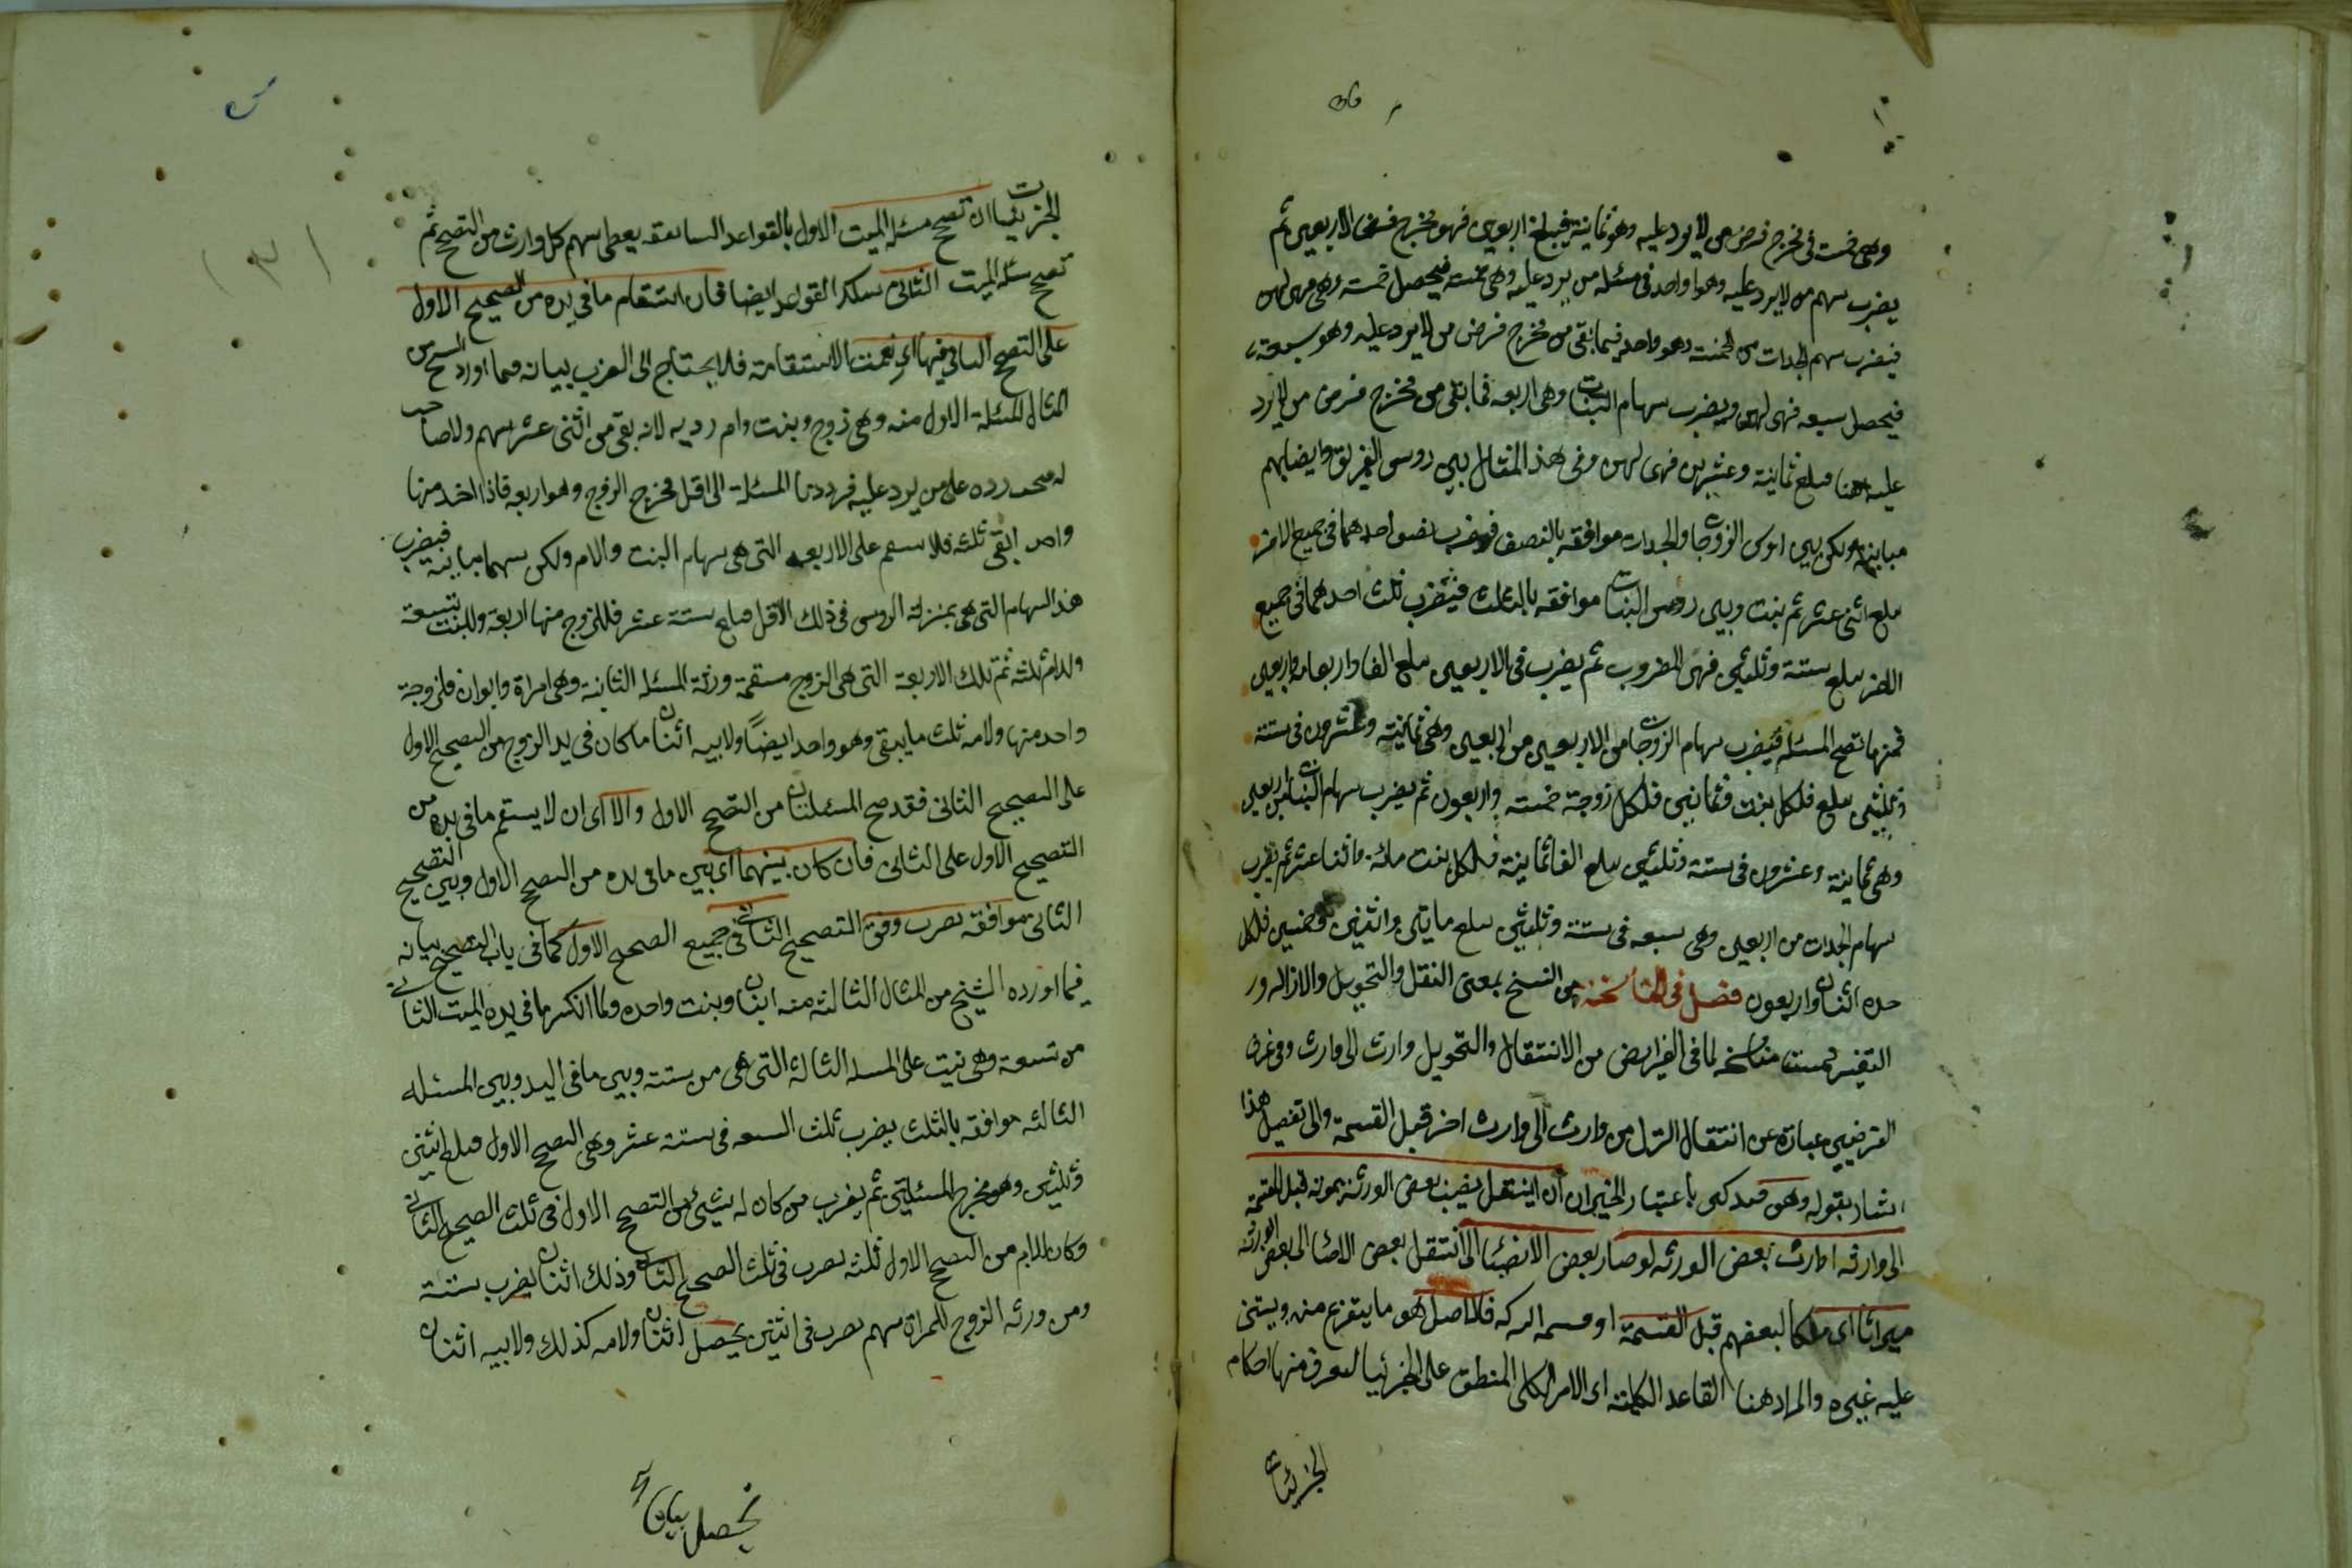 وهى خمسة فى مخرج فرض من لا يرد عليه وهو ثمانية فيبلغ اربعين فهو مخرج فرض الاربعين ثم
يضرب سهم من لا يرد عليه وهو واحد فى مسئلة من يرد عليه وهى خمسة فيحصل خمسة وهى فهى لهن
فيضرب سهم الجدات من الخمسة وهو واحد فيما بقى من مخرج فرض من لا يرد عليه وهو سبعة
فيحصل سبعة فهى لهن ويضرب سهام البنات وهى اربعة فما بقى من مخرج فرض من لا يرد
عليه هنا مبلغ ثمانية وعشرين فهى لهن وفى هذا المثال بين روس الفريق وايضا بهم
مباينة ولكن بين روس الزوجات والجدات موافقة بالنصف فيضرب نصف احدهما فى جميع الاخر
يبلغ اثنى عشر ثم بنت وبين روس البنات موافقة بالثلث فيضرب ثلث احدهما فى جميع
الاخر يبلغ ستة وثلثين فهى المضروب ثم يضرب فى الاربعين يبلغ الفا واربعمائة واربعين
فمنها تصح المسئلة فيضرب سهام الزوجات من الاربعين وهى ثمانية وعشرون فى ستة
وثلثين يبلغ فلكل بنت وثمانين فلكل زوجة خمسة واربعون ثم يضرب سهام البنات من اربعين
وهى ثمانية وعشرون فى ستة وثلثين يبلغ الفا ثمانية فلكل بنت مائة واثنا عشر ثم يضرب
سهام الجدات من اربعين وهى سبعة فى ستة وثلثين يبلغ مايتى واثنين وخمسين فلكل
جدة اثنان واربعون فصل فى المناسخة هى النسخ بمعنى النقل والتحويل والازالة ور
التغيير سميت مناسخة لما فى الفرايض من الانتقال والتحويل وارث الى وارث وفى عرف
الفرضيين عبارة عن انتقال الترك من وارث الى وارث اخر قبل القسمة والى تفصيل هذا
اشار بقوله وهو ان ينتقل نصيب بعض الورثة بموته قبل القسمة
الى وارثه اى وارث بعض الورثة لو صار بعض الانصباء اى انتقل بعض الانصبا الى بعض الورثة
ميراثا اى ملكا لبعضهم قبل القسمة اى قسمة التركة فالاصل هو ما يتفرع منه ويبتنى
عليه غيره والمراد هنا القاعدة الكلية اى الامر الكلى المنطبق على الجزئيات ليعرف منها احكام
الجزئيات
الجزئيات ان تصح مسئلة الميت الاول بالقواعد السابقة يعطى سهم كل وارث من التصحيح ثم
تصح مسئلة الميت الثانى بتلك القواعد ايضا فان استقام ما فى يده من التصحيح الاول
على التصحيح الثانى فيها اى نعمت الاستقامة فلا يحتاج الى الضرب بيانه فيما اورد الشيخ من
المثال المسئلة الاول منه وهى زوج وبنت وام ردية لانه بقى من اثنى عشر سهم ولا صاحب
له صحت رده على من يرد عليه فرددنا المسئلة الى اقل مخرج الزوج وهو اربعة فاذا اخذ منها
واحد ابقى ثلثة فلا يستقيم على الاربعة التى هى سهام البنت والام ولكن بينهما مباينة فيضرب
هذا السهام التى هى بمنزلة الروس فى ذلك الاقل مبلغ ستة عشر فللزوج منها اربعة وللبنت تسعة
وللام ثلثة ثم تلك الاربعة التى هى الزوج مستقيمة ورثة المسئلة الثانية وهى امراة وابوان فلزوجة
واحد منها ولامه ثلث ما يبقى وهو واحد ايضا ولابيه اثنان ما كان فى يد الزوج من التصحيح الاول
على التصحيح الثانى فقد صح المسئلتان من التصحيح الاول والا اى ان لا يستقم ما فى يده من
التصحيح الاول على الثانى فان كان بينهما اى بين ما فى يده من التصحيح الاول وبين التصحيح
الثانى موافقة يضرب وفق التصحيح الثانى فى جميع التصحيح الاول كما فى باب التصحيح بيانه
فيما اورده الشيخ من المثال الثالثة منه ابنان وبنت واحده ولما انكسر ما فى يده الميت الثانى
من تسعة وهى بنت على المسئلة الثالثة التى هى من ستة وبين ما فى اليد وبين المسئلة
الثالثة موافقة بالثلث يضرب ثلث التسعة فى ستة عشر وهى التصحيح الاول مبلغ اثنين
وثلثين وهو مخرج المسئلتين ثم يضرب من كان له شيئ من التصحيح الاول فى ثلث التصحيح الثانى
وكان للام من التصحيح الاول ثلثة يضرب فى ثلث التصحيح الثانى وذلك اثنان يضرب ستة
ومن ورثة الزوج للمراة سهم يضرب فى اثنين يحصل اثنان ولامه كذلك ولابيه اثنان
يحصل